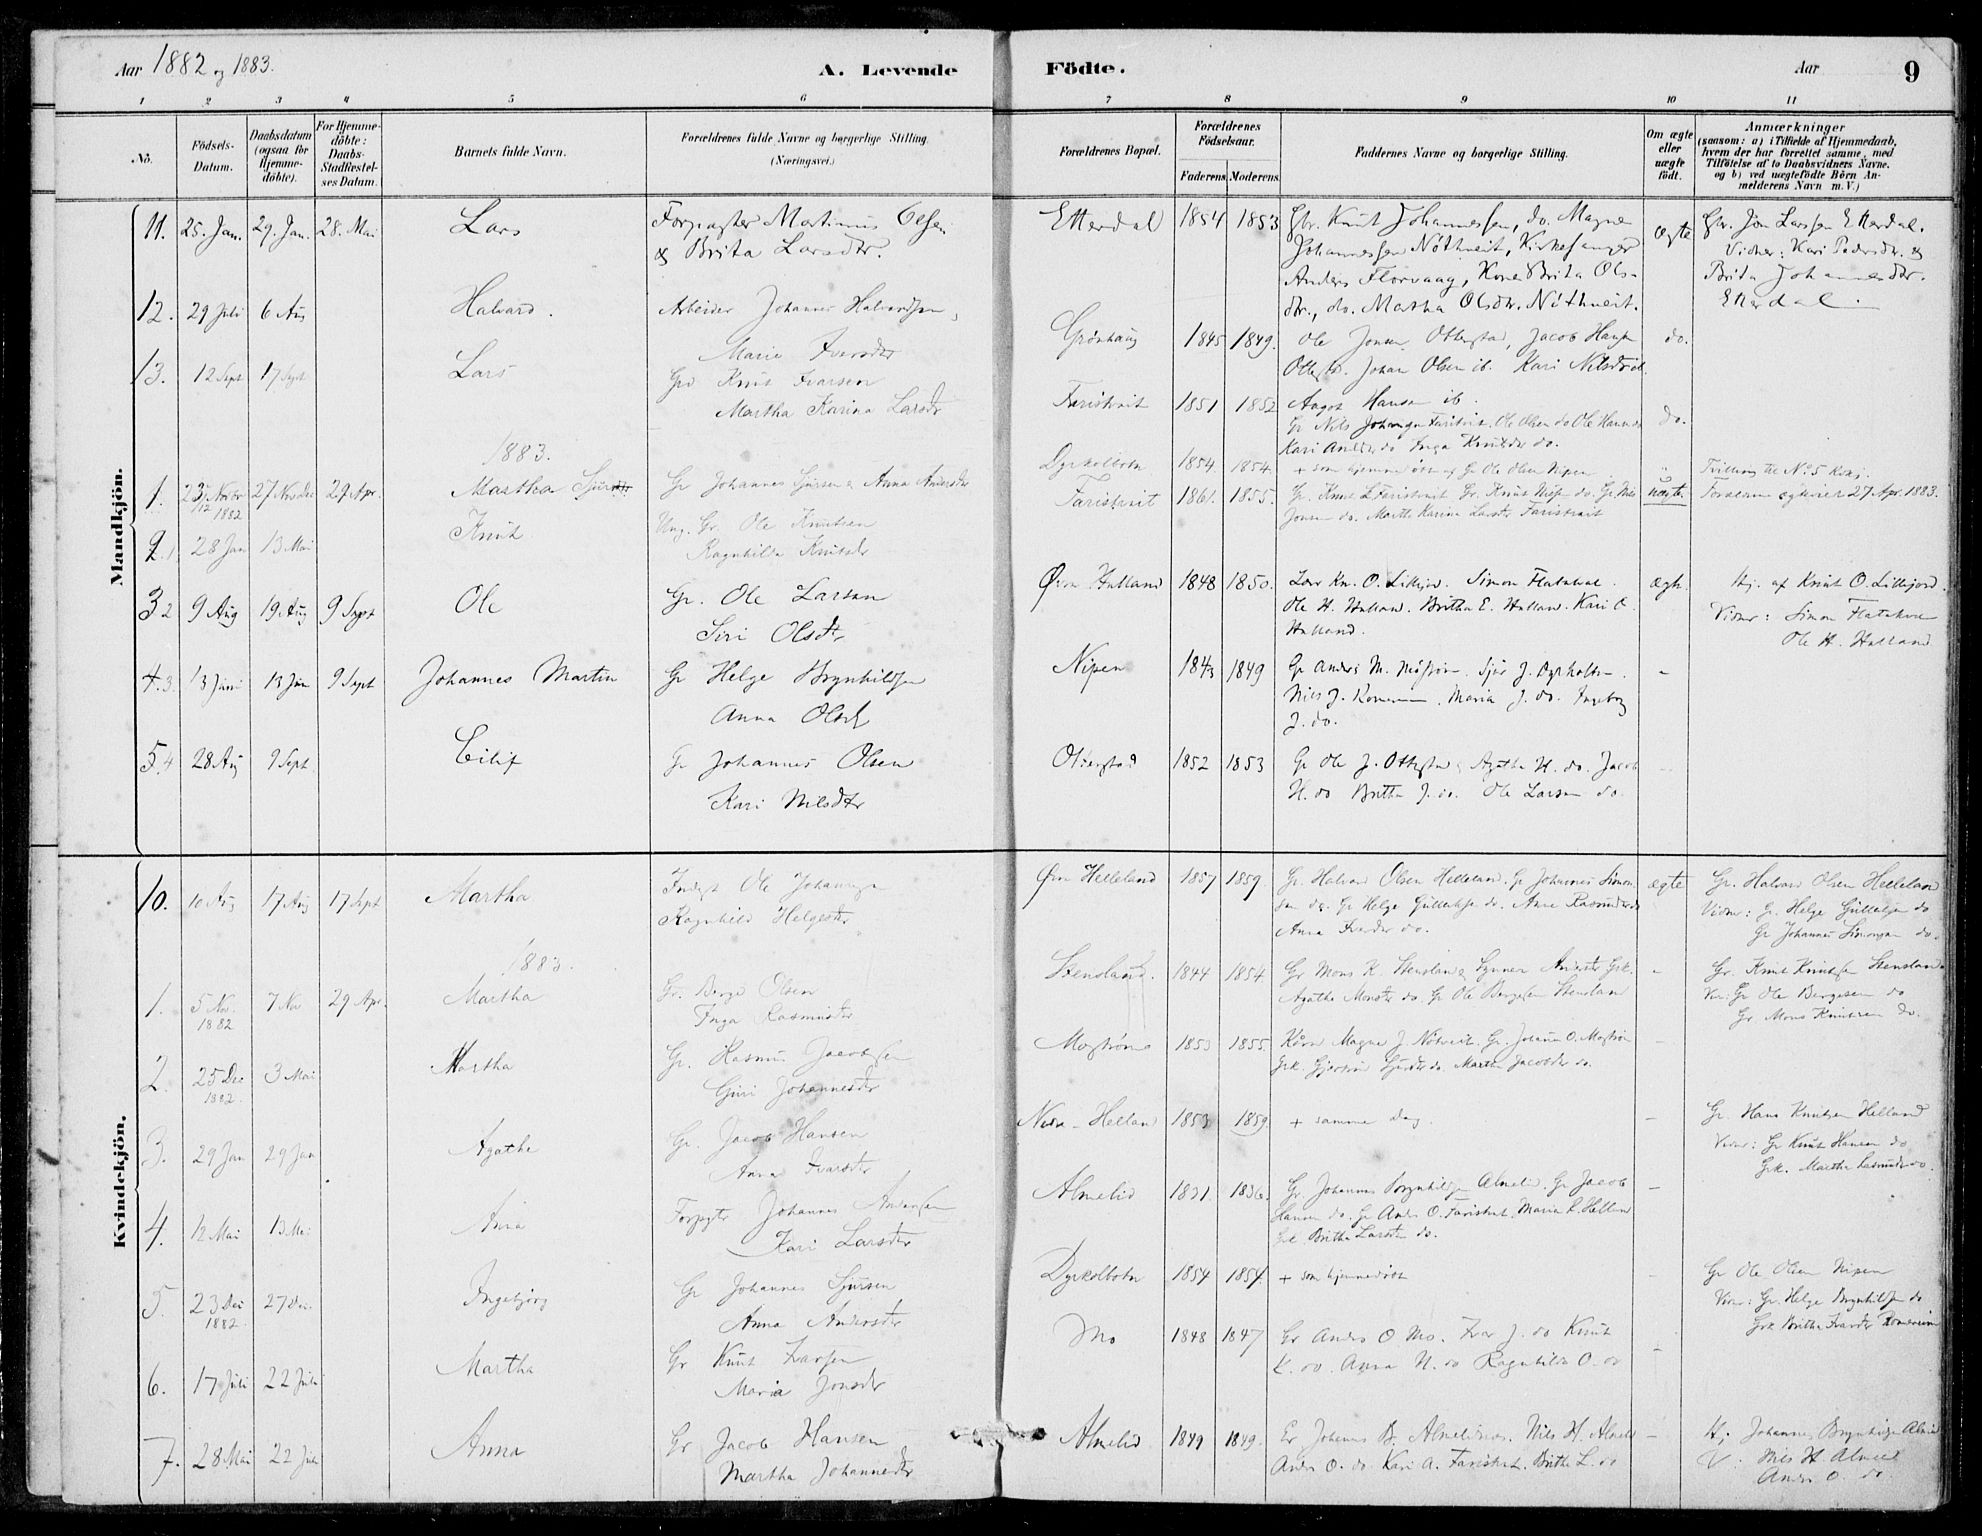 Aar 1882 og 1883.
A. Levende Födte.
Aar
9
1 2 3 4 5 6 7 8 9 10 11
No.
Födsels-Datum.
Daabsdatum (ogsaa for Hjemme-döbte).
For Hjemme-döbte: Daabs-Stadfæstel-ses Datum.
Barnets fulde Navn.
Forældrenes fulde Navne og borgerlige Stilling. (Næringsvei.)
Forældrenes Bopæl.
Forældrenes Födselsaar.
Faderens Moderens
Faddernes Navne og borgerlige Stilling.
Om ægte eller uægte födt.
Anmærkninger (saasom: a) i Tilfælde af Hjemmedaab, hvem der har forrettet samme, med Tilföielse af to Daabsvidners Navne. og b) ved uægtefödte Börn Anmelderens Navn m. V.)
Mandkjön.
11. 25. Jan. 29. Jan. 28. Mai Lars Forpagter Martinus Olsen Etterdal 1854 1853 Gbr. Knut Johannessen, do. Magne ægte Gbr. Jon Larssen Etterdal.
& Brita Larsdtr. Johannessen Nøthveit, Kirkesanger Vidner: Kari Pedersdr. &
Anders Florvaag, Kone Brita Ols- Brita Johannesdtr.
dtr., do. Martha Olsdtr. Nøthveit. Etterdal
12. 29 Juli 6 Aug Halvard. Arbeider Johannes Halvardsen, Grønhaug 1845 1849. Ole Jonsen Otterstad, Jacob Hansen do.
Marie Iversdtr Johan Olsen ib. Kari Nilsdtr ib.
13. 12 Sept 17 Sept Lars Grd Knut Ivarsen Faristveit 1851 1852 Aagot Hansen ib. do.
Martha Karina Larsdtr Gr Nils Faristvet. Ole Olsen do Ole Hansen do
Kari Andersd do Inga Knutsdtr do.
1883.
1. 23/12 1882 27 Dec 29 Apr. Martha Gr Johannes Sjursen & Anna Andersdtr Dyrkolbotn 1854. 1854. + som hjemmedøbt af Gr Ole Olsen Nipen Tvilling til No 5 Kvkj.
2.1 28 Jan 13 Mai Knut Ung. Gr. Ole Knutsen Faristveit 1861. 1855. Gr. Knut L Faristveit Gr. Knut do. Gr. Nils uægte. 27 Apr. 1883.
Ragnhilda Knutsdr Jonsen do. Marthe Karine Larsdtr Faristveit
3 2 9 Aug 19 Aug 9 Sept Ole Gr. Ole Larsen Øvre Helland 1848 1850. Lær Kn. O. Lillejord. Simon Flatekval. ægte. Hj. af Knut O. Lillejord.
Siri Olsdtr Ole H. Helland. Britha E. Helland. Kari O. Vidner: Simon Flatekval
Helland. Ole H. Helland
4.3. 13 Juni 13 Jun 9 Sept Johannes Martin Gr Helge Brynhildsen Nipen 1843 1849 Gr Anders M. Møstrøm. Sjur J. Dyrkolbotn. -
Anna Olsdr Nils J. Romarheim. Maria J. do. Ingeborg
J. do.
5.4 28 Aug 9 Sept. Eilif Gr Johannes Olsen Otterstad 1852 1853 Gr Ole J. Otterstad, Agathe H. do. Jacob
Kari Nilsdtr H. do Britha J. do. Ole Larsen do.
Kvindekjön.
10. 10 Aug 17 Aug 17 Sept Martha Inderst Ole Johannesen Øvre Helleland 1857 1859. Gr. Halvard Olsen Helleland. Gr Johannes Simon- ægte Gr. Halvard Olsen Helleland
Ragnhild Helgesdtr sen do. Gr Helge Gulleiksen do. Anne Rasmusdr do Vidner: Gr. Helge Gulleiksen do
Anna Ivarsdr do. Gr Johannes Simonsen do.
1883.
1. 5 Nov. 1882 7 Nov 29 Apr. Martha Gr. Berge Olsen Stensland. 1844 1854. Gr Mons K. Stensland, Synneve Andersdtr Grk. - Gr. Knut Knutsen Stensland
Inga Rasmusdtr Agathe Monsdtr do. Gr Ole Bergesen Stensland Vidn: Gr Ole Bergesen do
Gr Mons Knutsen do.
2. 25 Dec 1882. 3 Mai Martha Gr. Rasmus Jacobsen Mostrøm 1853 1855. Magne J. Nøtveit. Gr. Johannes O. Mostrøm -
Guri Johannesdtr Grk. Sjursdtr do. Martha Jacobsdtr do.
3. 29 Jan 29 Jan Agathe Gr. Jacob Hansen Nedre Helland 1853 1859. + samme Dag. - Gr. Hans Knutsen Helland
Anna Ivarsdtr Vidner: Gr Knut Hansen do
Grk. Martha Rasmusdr do.
4. 12 Mai 13 Mai Anna Forpgtr Johannes Andersen Almelid 1831. 1836. Gr Johannes Brynhildsen Almelid. Gr Jacob -
Kari Larsdtr Hansen do. Gr Anders O. Faristvet. Maria L. Helland
Grk. Britha Larsdtr do.
5. 23 Dec 1882. 27 Dec. Ingebjørg Gr Johannes Sjursen Dyrkolbotn 1854 1854. + som hjemmedøbt - Gr Ole Olsen Nipen
Anna Andersdtr Vidn: Gr. Helge Brynhildsen do
Grk Britha Ivarsdtr Romereim
6. 17 Juli 22 Juli Martha Gr Knut Ivarsen Mo 1848 1847 Gr Anders O Mo. Ivar J. do Knut -
Maria Jonsdr K. do. Anna N. do Ragnhilda O. do
7. 28 Mai 22 Juli Anna Gr Jacob Hansen Almelid 1849 1849. Gr Johannes B. Almelid. Nils H. Almelid - Hj. Johannes Brynhildsen Almelid
Martha Johannesdtr Anders O. do. Kari A. Faristvet. Britha L. do V: Nils H Almelid
Anders O. do.